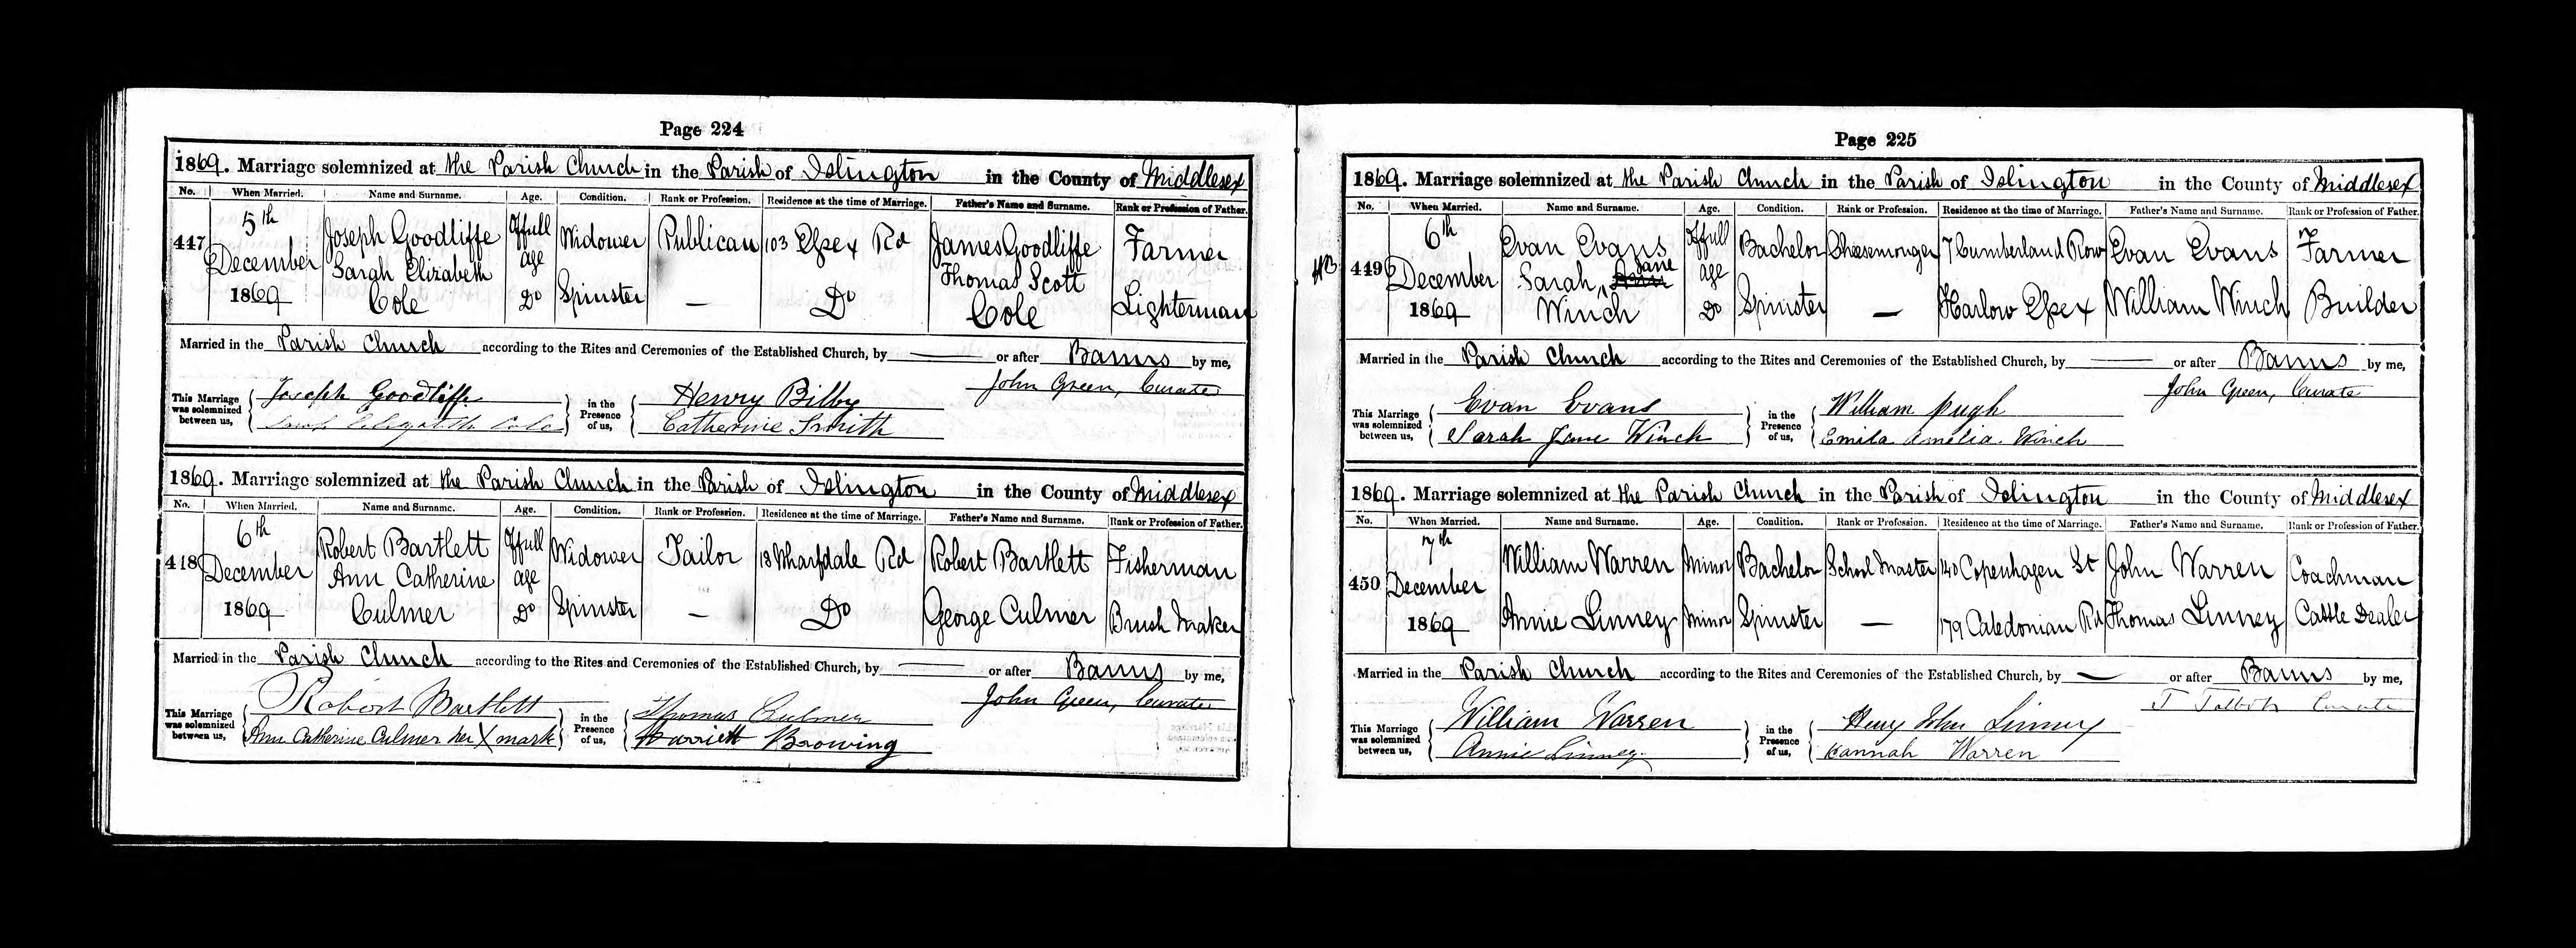 Page 224
1869. Marriage solemnized at the Parish Church in the Parish of Islington in the County of Middlesex
No. When Married. Name and Surname. Age. Condition. Rank or Profession. Residence at the time of Marriage. Father's Name and Surname. Rank or Profession of Father.
447 5th December 1869 Joseph Goodliffe Of full age Widower Publican 103 Essex Rd James Goodliffe Farmer
Sarah Elizabeth Cole Do Spinster — Do Thomas Scott Cole Lighterman
Married in the Parish Church according to the Rites and Ceremonies of the Established Church, by — or after Banns by me,
John Green, Curate
This Marriage was solemnized between us, Joseph Goodliffe in the Presence of us, Henry Bilby
Sarah Elizabeth Cole Catherine Smith
1869. Marriage solemnized at the Parish Church in the Parish of Islington in the County of Middlesex
No. When Married. Name and Surname. Age. Condition. Rank or Profession. Residence at the time of Marriage. Father's Name and Surname. Rank or Profession of Father.
448 6th December 1869 Robert Bartlett Of full age Widower Tailor 18 Wharfdale Rd Robert Bartlett Fisherman
Ann Catherine Culmer Do Spinster — Do George Culmer Brush Maker
Married in the Parish Church according to the Rites and Ceremonies of the Established Church, by — or after Banns by me,
John Green, Curate
This Marriage was solemnized between us, Robert Bartlett in the Presence of us, Thomas Culmer
Ann Catherine Culmer her X mark Harriett Browing
Page 225
1869. Marriage solemnized at the Parish Church in the Parish of Islington in the County of Middlesex
No. When Married. Name and Surname. Age. Condition. Rank or Profession. Residence at the time of Marriage. Father's Name and Surname. Rank or Profession of Father.
449 6th December 1869 Evan Evans Of full age Bachelor Cheesemonger 7 Cumberland Row Evan Evans Farmer
Sarah Jane Winch Do Spinster — Harlow Essex William Winch Builder
Married in the Parish Church according to the Rites and Ceremonies of the Established Church, by — or after Banns by me,
John Green, Curate
This Marriage was solemnized between us, Evan Evans in the Presence of us, William Pugh
Sarah Jane Winch Emila Amelia Winch
1869. Marriage solemnized at the Parish Church in the Parish of Islington in the County of Middlesex
No. When Married. Name and Surname. Age. Condition. Rank or Profession. Residence at the time of Marriage. Father's Name and Surname. Rank or Profession of Father.
450 7th December 1869 William Warren Minor Bachelor School Master 140 Copenhagen St John Warren Coachman
Annie Linney Minor Spinster — 179 Caledonian Rd Thomas Linney Cattle Dealer
Married in the Parish Church according to the Rites and Ceremonies of the Established Church, by — or after Banns by me,
J Talbot Curate
This Marriage was solemnized between us, William Warren in the Presence of us, Henry John Linney
Annie Linney Hannah Warren